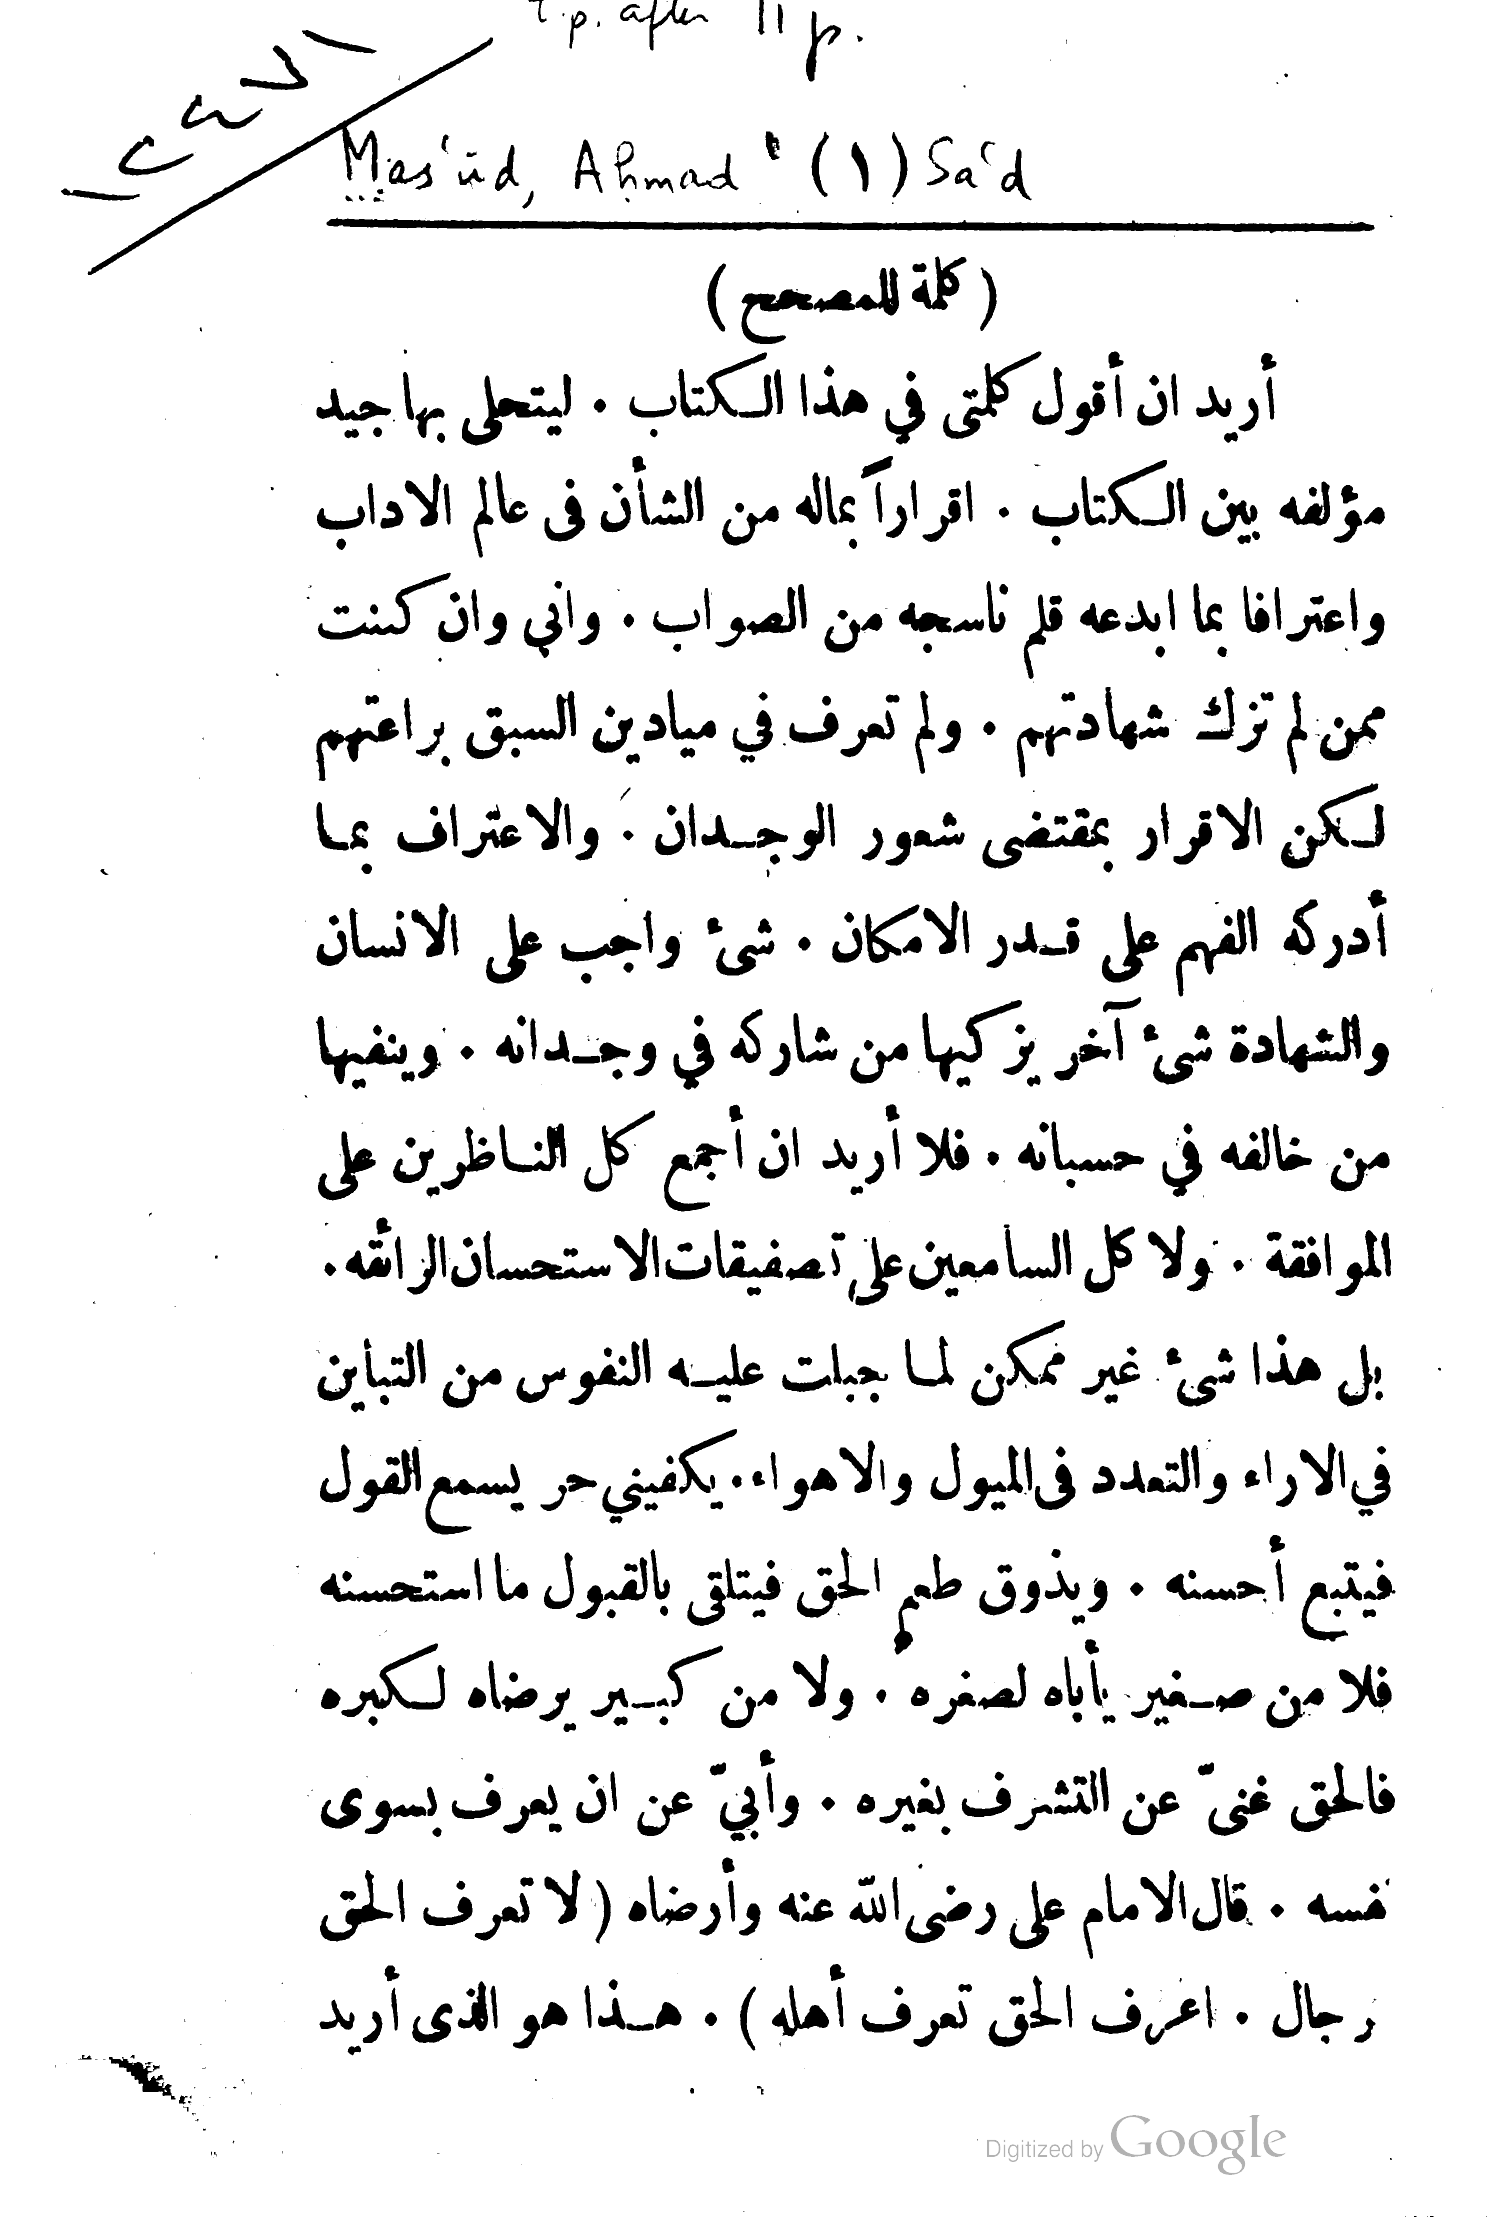 t.p. after 11 p.
Mas'ūd, Aḥmad ' (١) Sa'd
(كلمة للمصحح)
أريد ان أقول كلمتى في هذا الكتاب • ليتحلى بها جيد
مؤلفه بين الكتاب • اقراراً بماله من الشأن فى عالم الاداب
واعترافا بما ابدعه قلم ناسجه من الصواب • واني وان كنت
ممن لم تزك شهادتهم • ولم تعرف في ميادين السبق براعتهم
لكن الاقرار بمقتضى شعور الوجدان • والاعتراف بما
أدركه الفهم على قدر الامكان • شئ واجب على الانسان
والشهادة شئ آخر يزكيها من شاركه في وجدانه • وينفيها
من خالفه في حسبانه • فلا أريد ان أجمع كل الناظرين على
الموافقة • ولا كل السامعين على تصفيقات الاستحسان الرائقه •
بل هذا شئ غير ممكن لما جبلت عليه النفوس من التباين
في الاراء والتعدد فى الميول والاهواء • يكفيني حر يسمع القول
فيتبع أحسنه • ويذوق طعم الحق فيتلقى بالقبول ما استحسنه
فلا من صغير يأباه لصغره • ولا من كبير يرضاه لكبره
فالحق غنىّ عن التشرف بغيره • وأبيّ عن ان يعرف بسوى
نفسه • قال الامام على رضى الله عنه وأرضاه (لا تعرف الحق
رجال • اعرف الحق تعرف أهله) • هذا هو الذى أريد
Digitized by Google